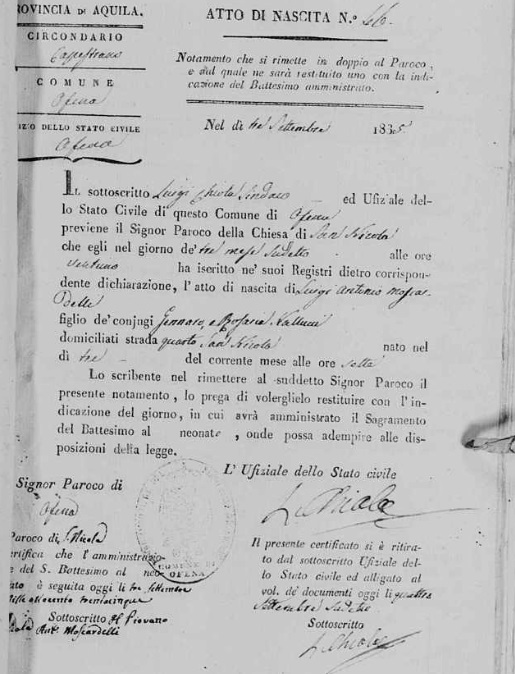 ROVINCIA DI AQUILA.
CIRCONDARIO
Capestrano
COMUNE
Ofena
IZIO DELLO STATO CIVILE
Ofena
ATTO DI NASCITA N.° 46.
Notamento che si rimette in doppio al Paroco,
e dal quale ne sarà restituito uno con la indi-
cazione del Battesimo amministrato.
Nel dì tre Settembre 1835
IL sottoscritto Luigi Chiola Sindaco ed Ufiziale del-
lo Stato Civile di questo Comune di Ofena
previene il Signor Paroco della Chiesa di San Nicola
che egli nel giorno de' tre mese sudetto alle ore
ventuno ha iscritto ne' suoi Registri dietro corrispon-
dente dichiarazione, l'atto di nascita di Luigi Antonio Moscar-
delli
figlio de' conjugi Gennaro, e Rosaria Vallucci
domiciliati strada quarto San Nicola nato nel
dì tre del corrente mese alle ore sette
Lo scribente nel rimettere al suddetto Signor Paroco il
presente notamento, lo prega di volerglielo restituire con l'in-
dicazione del giorno, in cui avrà amministrato il Sagramento
del Battesimo al neonato, onde possa adempire alle dis-
posizioni della legge.
L'Ufiziale dello Stato civile
L. Chiola
Signor Paroco di
Ofena
Paroco di S. Nicola
ertifica che l'amministrazio-
e del S. Battesimo al neo-
ato è seguita oggi li tre settembre
mille ottocento trentacinque
Sottoscritto Il Piovano
Ant.° Moscardelli
COMUNE DI
OFENA
Il presente certificato si è ritira-
to dal sottoscritto Ufiziale del-
lo Stato civile ed alligato al
vol. de' documenti oggi li quattro
Settembre sudetto
Sottoscritto
L. Chiola